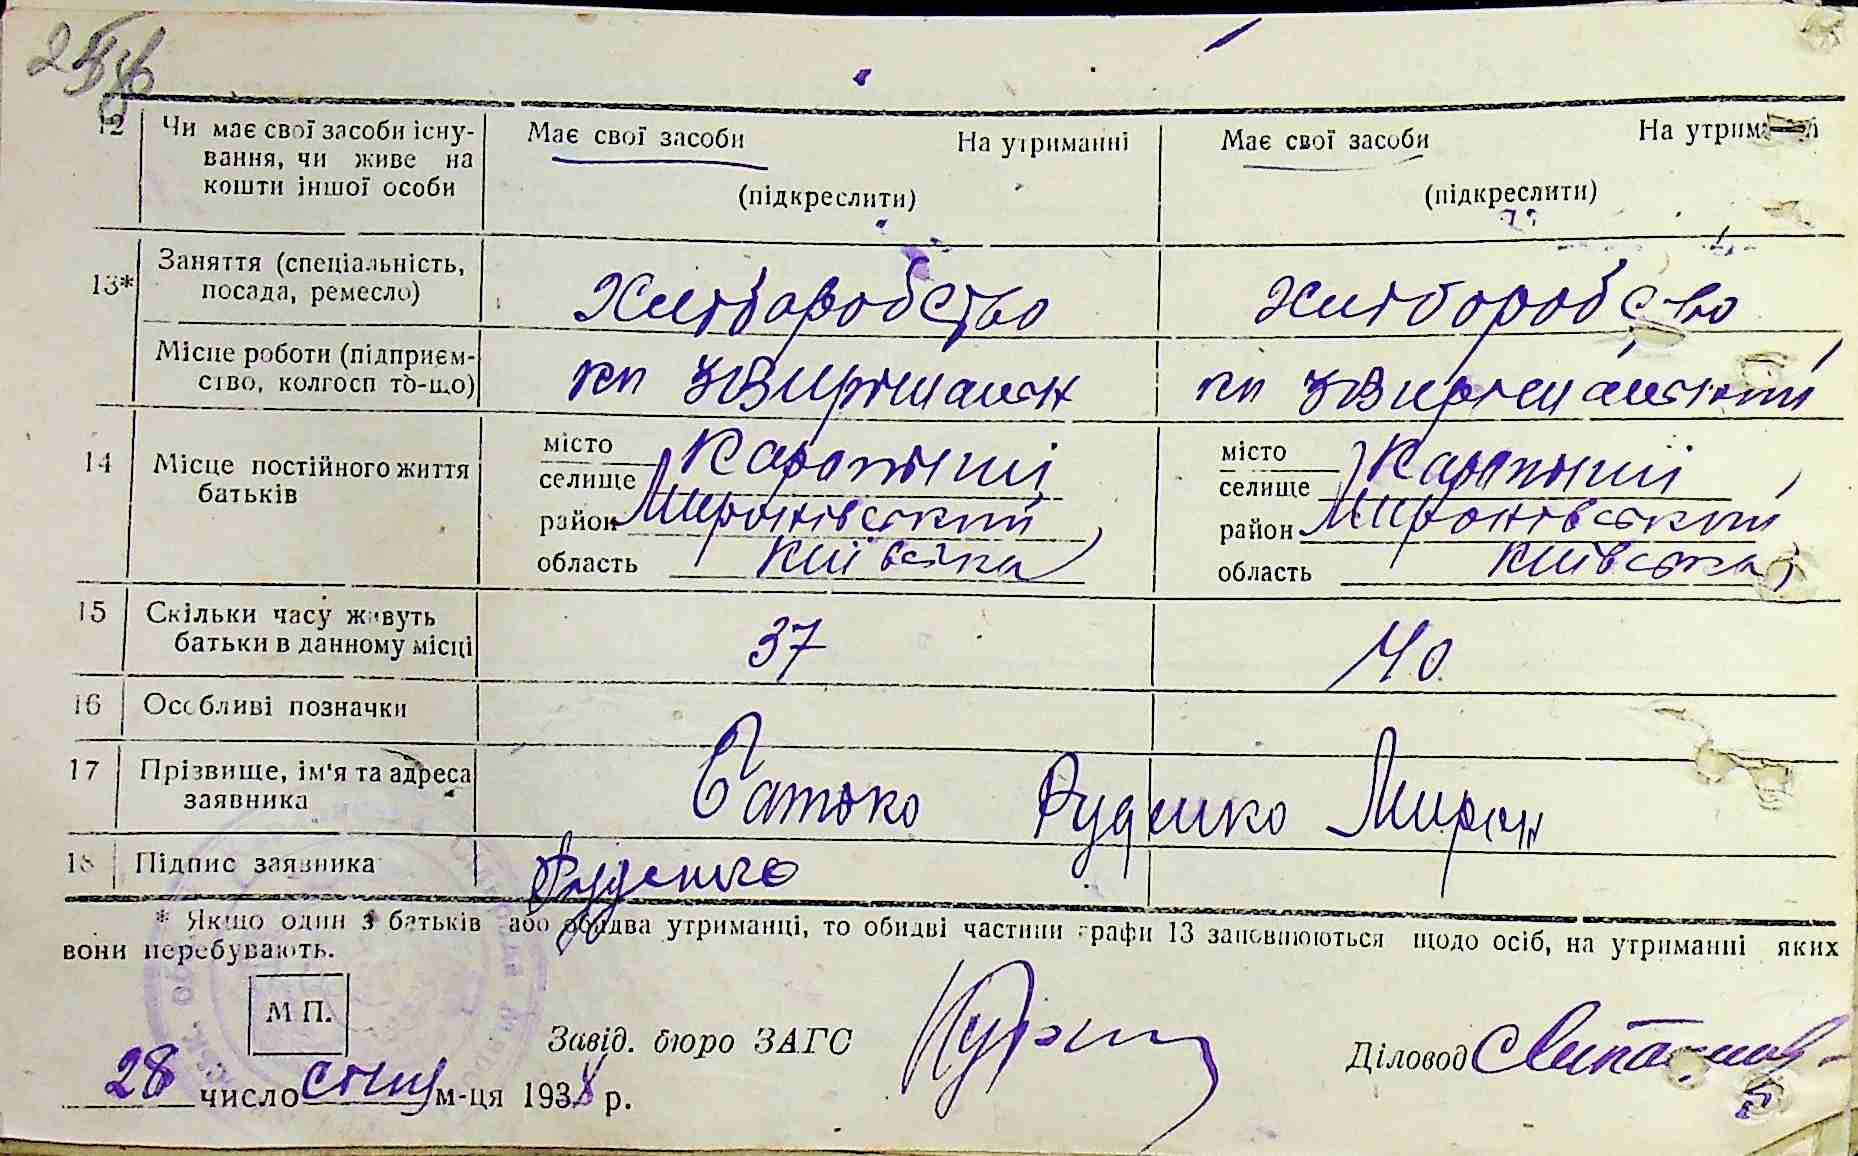 12 Чи має свої засоби існу-
вання, чи живе на
кошти іншої особи
Має свої засоби На утриманні
(підкреслити)
Має свої засоби На утриманні
(підкреслити)
13* Заняття (спеціальність,
посада, ремесло)
Хліборобство
хліборобство
Місце роботи (підприєм-
ство, колгосп то-що)
14 Місце постійного життя
батьків
місто
селище Карапиші
район Миронівський
область Київська
місто
селище Карапиші
район Миронівський
область Київська
15 Скільки часу живуть
батьки в данному місці
37
40
16 Особливі позначки
17 Прізвище, ім'я та адреса
заявника
Батько Руденко Мирон
18 Підпис заявника
Руденко
* Якщо один з батьків або обидва утриманці, то обидві частини графи 13 заповнюються щодо осіб, на утриманні яких
вони перебувають.
М П.
Завід. бюро ЗАГС
Діловод
28 число січня м-ця 1938 р.